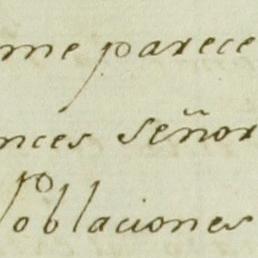 me parece
nces señor
Poblaciones